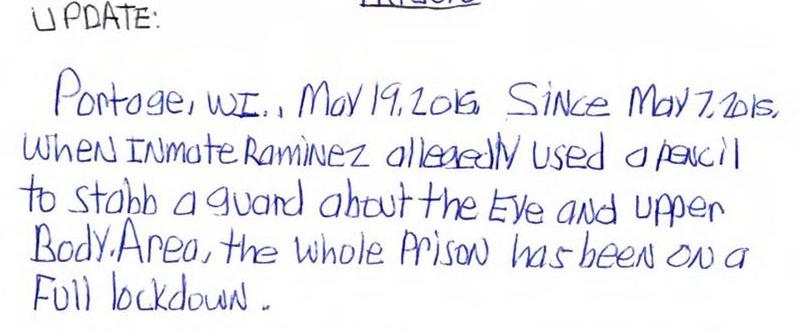 UPDATE:
Portage, WI., May 19, 2015. Since May 7, 2015,
when INmate Raminez allegedly used a pencil
to stabb a guard about the Eye and upper
Body.Area, the whole Prison has been on a
Full lockdown.